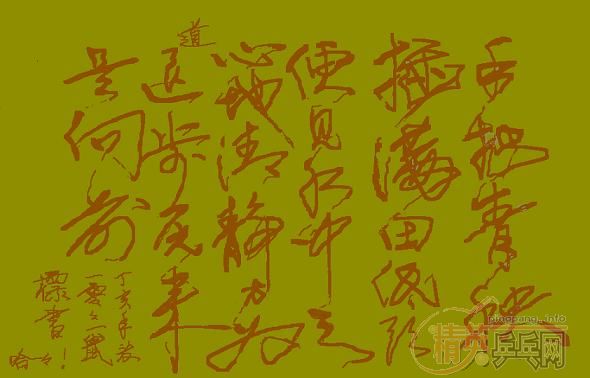 手把青秧
插满田低头
便见水中天
心地清静方为
道
退步原来
是向前
丁亥年
標書
哈々！
pingpang.info
精英乒乓网